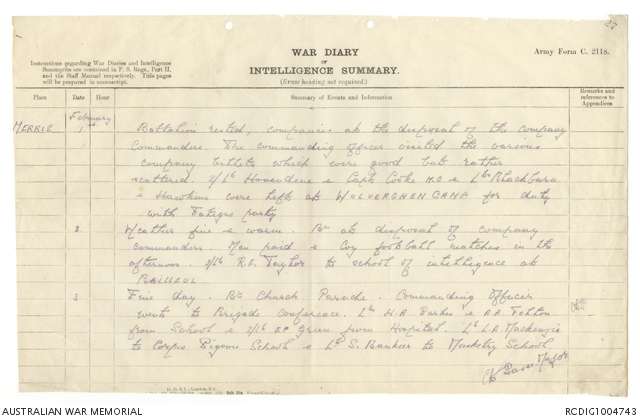 WAR DIARY
or
INTELLIGENCE SUMMARY.
(Erase heading not required.)
Army Form C. 2118.
Instructions regarding War Diaries and Intelligence
Summaries are contained in F. S. Regs., Part II.
and the Staff Manual respectively. Title pages
will be prepared in manuscript.
Place Date Hour Summary of Events and Information Remarks and
references to
Appendices
MERRIS February
1st Battalion rested, companies at the disposal of the company
Commanders. The commanding officer visited the various
company billets which were good but rather
scattered. 2/Lt & Capt. Cooke M.C. & Lts
& Hawkins were left at WOLVERGHEN CAMP for duty
with Fatigue party
2. Weather fine & warm. Bn at disposal of company
commanders. Men paid & Coy football matches in the
afternoon. 2/Lt R.C. Taylor to school of intelligence at
BAILLEUL
3. Fine day. Bn Church Parade. Commanding Officer
went to Brigade Conference. Lts H.A. Parkes & A.A.
from School & 2/Lt Green from Hospital. Lt L.A. Mackenzie
to Corps Pigeon School & Lt S. Bankier to Musketry School
Major
AUSTRALIAN WAR MEMORIAL
RCDIG1004743